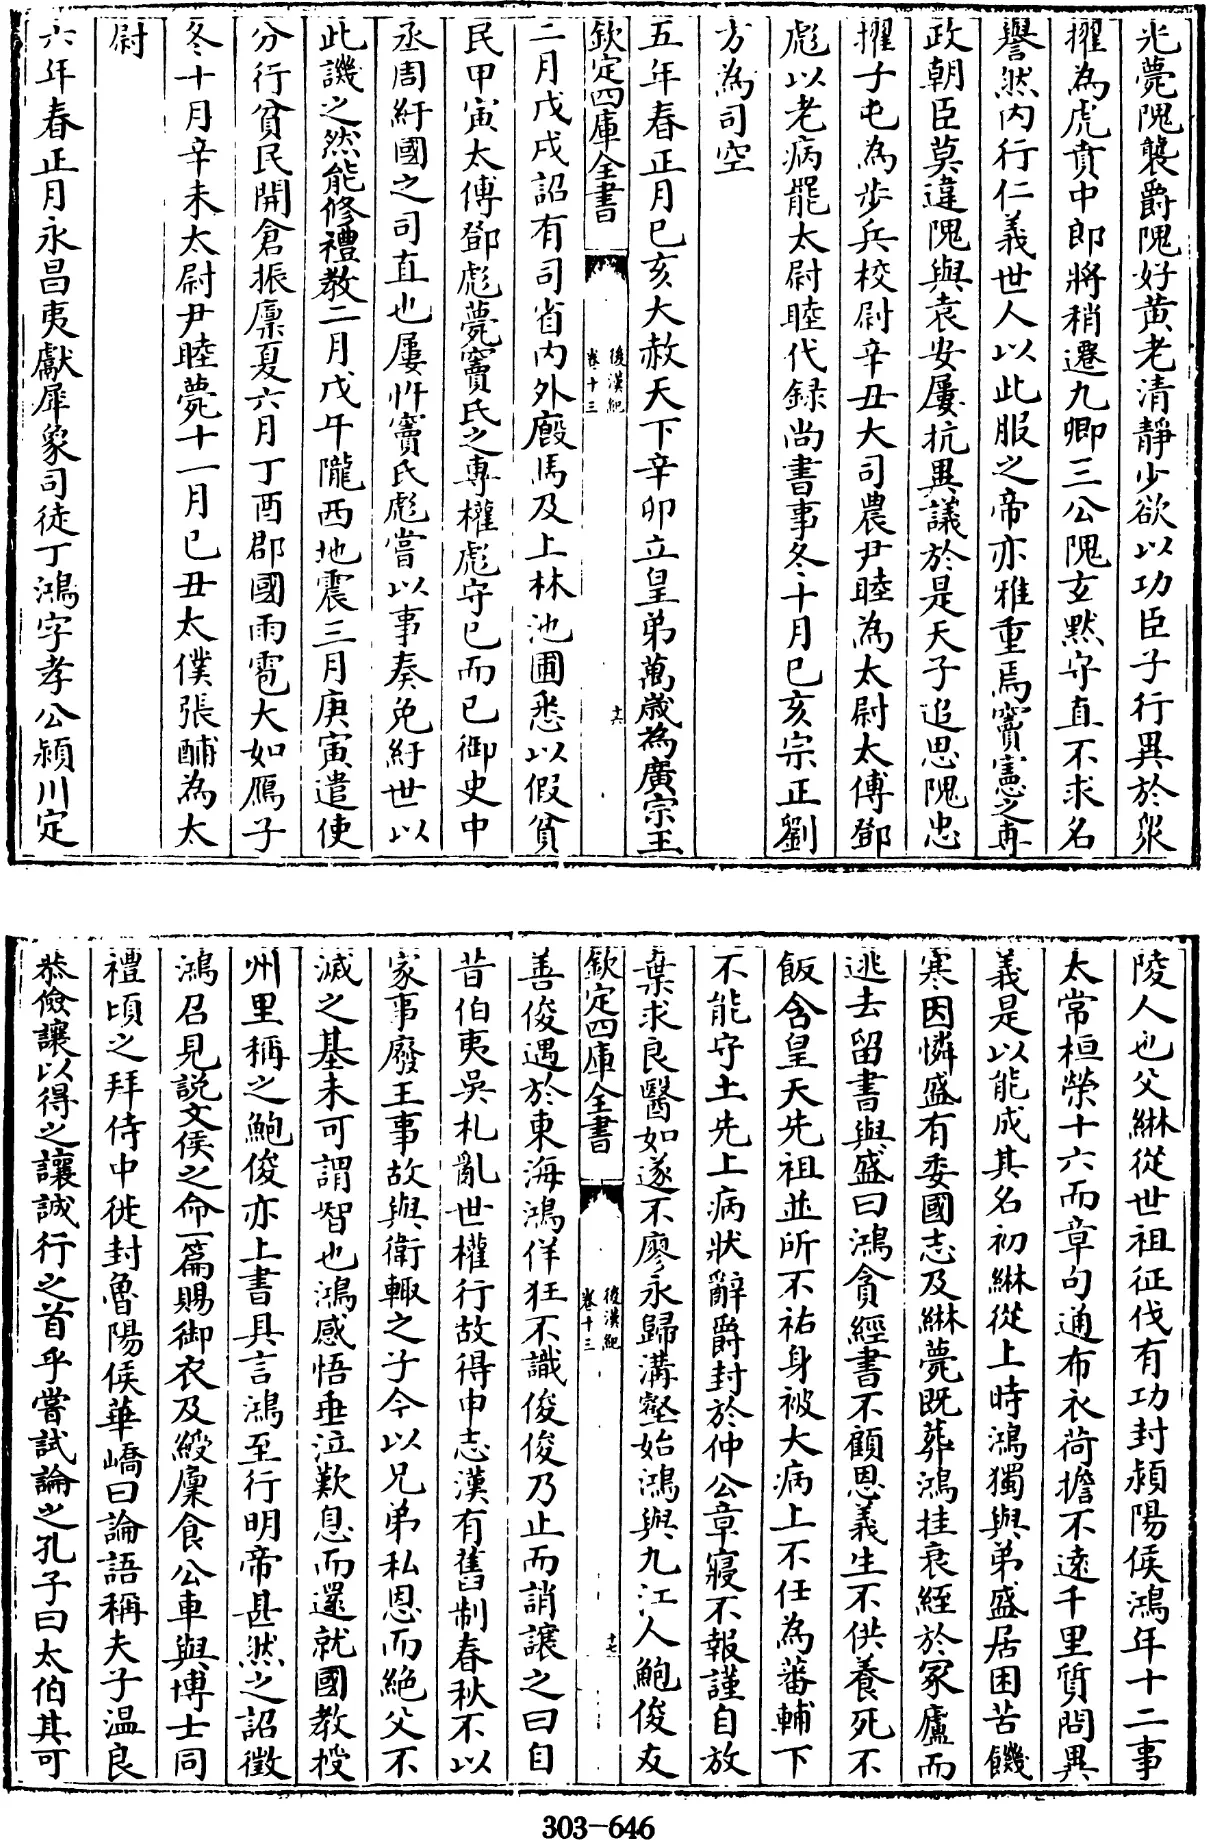 光薨隗襲爵隗好黄老清靜少欲以功臣子行異於衆
擢為虎賁中郎將稍遷九卿三公隗玄黙守直不求名
譽然内行仁義世人以此服之帝亦雅重焉竇憲之專
政朝臣莫違隗與袁安屢抗異議於是天子追思隗忠
擢子屯為步兵校尉辛丑大司農尹睦為太尉太傅鄧
彪以老病罷太尉睦代録尚書事冬十月已亥宗正劉
方為司空
五年春正月已亥大赦天下辛卯立皇弟萬歳為廣宗王
欽定四庫全書
後漢紀
卷十三
十六
二月戊戌詔有司省内外廐馬及上林池圃悉以假貧
民甲寅太傅鄧彪薨竇氏之專權彪守已而已御史中
丞周紆國之司直也屢忤竇氏彪嘗以事奏免紆世以
此譏之然能修禮教二月戊午隴西地震三月庚寅遣使
分行貧民開倉振廪夏六月丁酉郡國雨雹大如鴈子
冬十月辛未太尉尹睦薨十一月已丑太僕張酺為太
尉
六年春正月永昌夷獻犀象司徒丁鴻字孝公潁川定
陵人也父綝從世祖征伐有功封潁陽侯鴻年十二事
太常桓榮十六而章句通布衣荷擔不遠千里質問異
義是以能成其名初綝從上時鴻獨與弟盛居困苦饑
寒因憐盛有委國志及綝薨既葬鴻挂衰絰於冢廬而
逃去留書與盛曰鴻貪經書不顧恩義生不供養死不
飯含皇天先祖並所不祐身被大病上不任為蕃輔下
不能守土先上病狀辭爵封於仲公章寢不報謹自放
棄求良醫如遂不廖永歸溝壑始鴻與九江人鮑俊友
欽定四庫全書
後漢紀
卷十三
十七
善俊遇於東海鴻佯狂不識俊俊乃止而誚讓之曰自
昔伯夷吳札亂世權行故得申志漢有舊制春秋不以
家事廢王事故與衛輙之子今以兄弟私恩而絶父不
滅之基未可謂智也鴻感悟垂泣歎息而還就國教授
州里稱之鮑俊亦上書具言鴻至行明帝甚然之詔徵
鴻召見説文侯之命一篇賜御衣及綬廩食公車與博士同
禮頃之拜侍中徙封魯陽侯華嶠曰論語稱夫子温良
恭儉讓以得之讓誠行之首乎嘗試論之孔子曰太伯其可
303-646